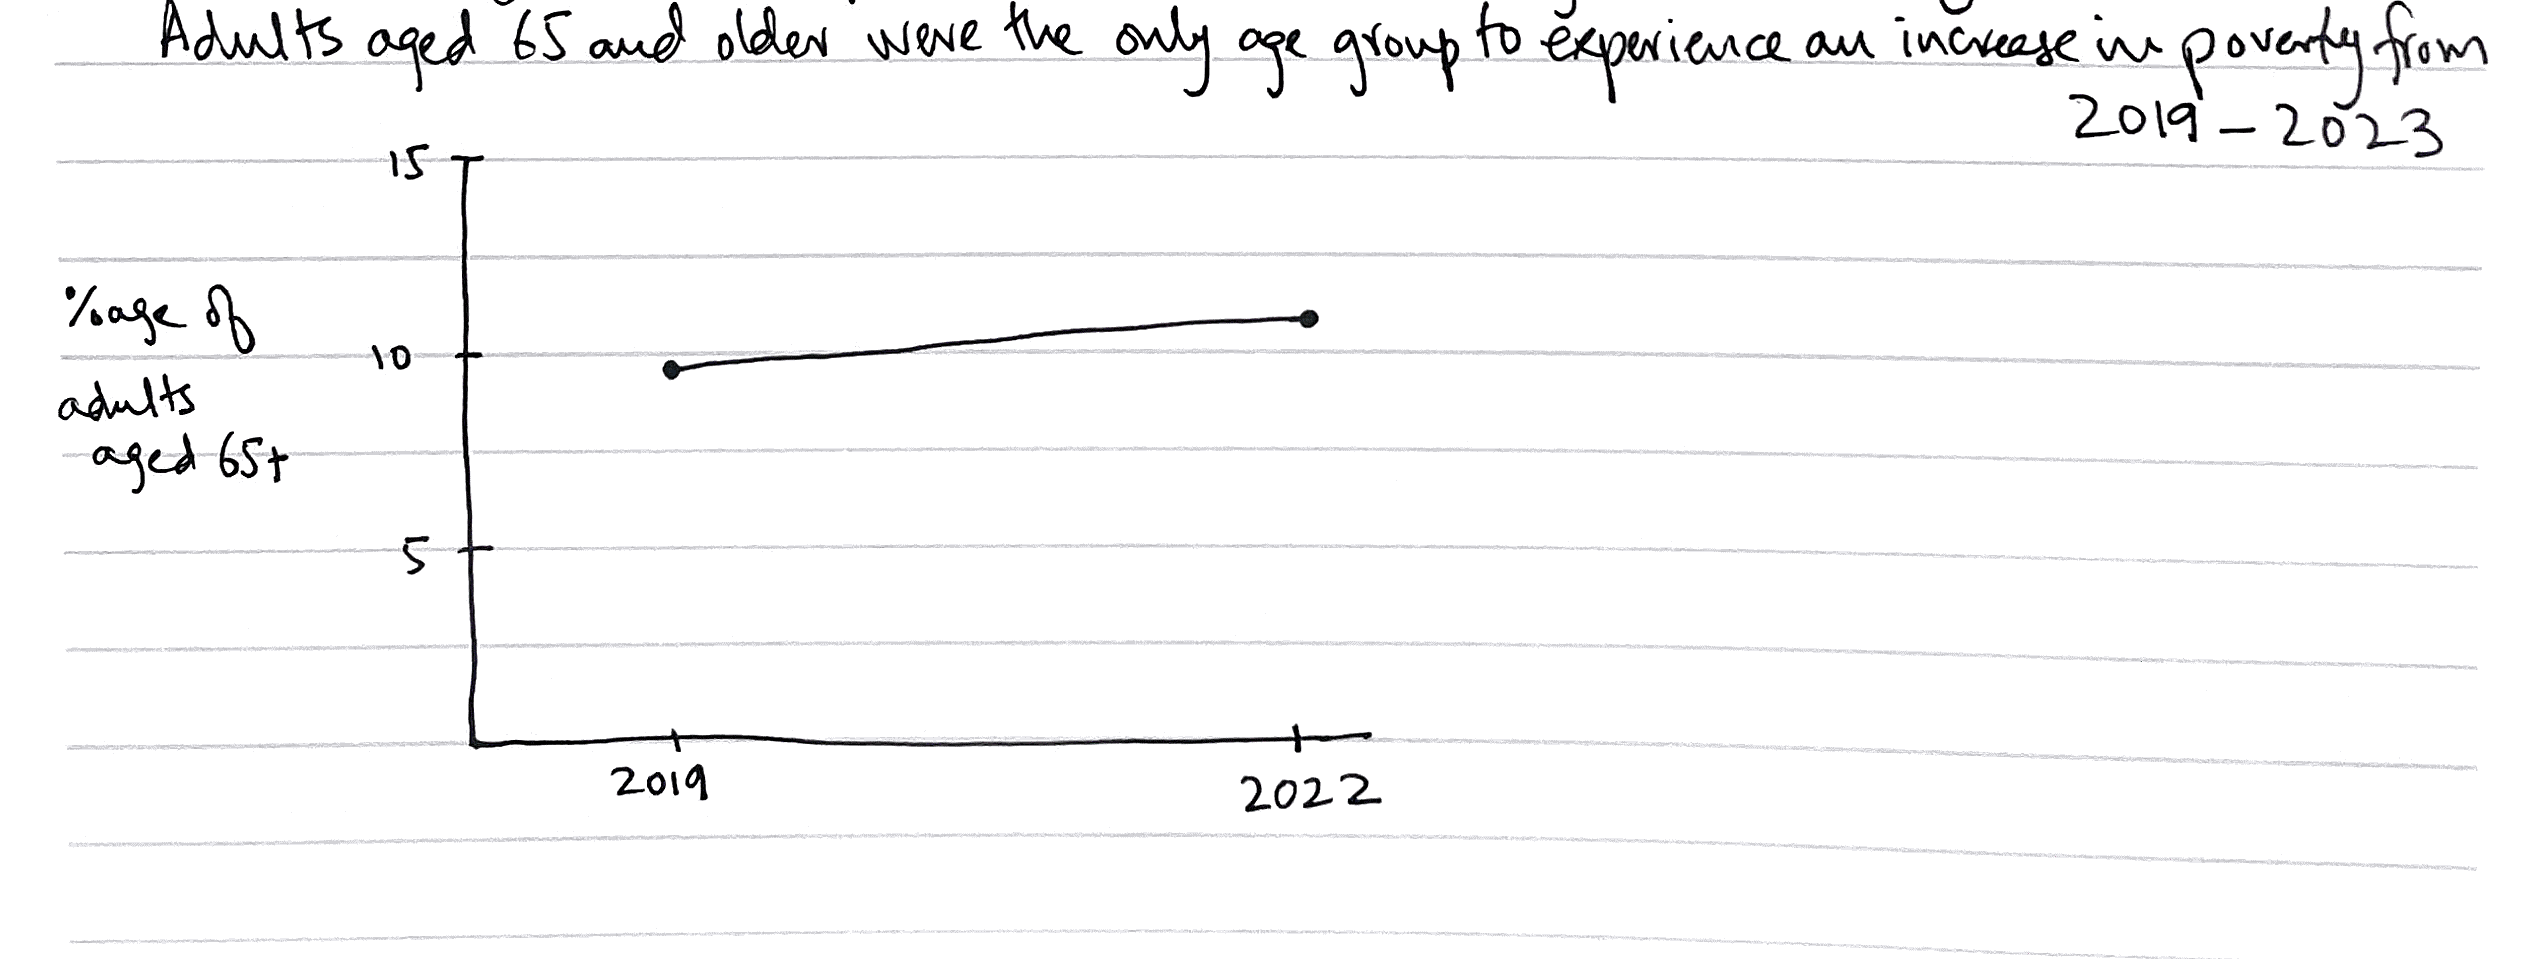 Adults aged 65 and older were the only age group to experience an increase in poverty from
2019 – 2023
15
%age of
10
adults
aged 65+
5
2019
2022